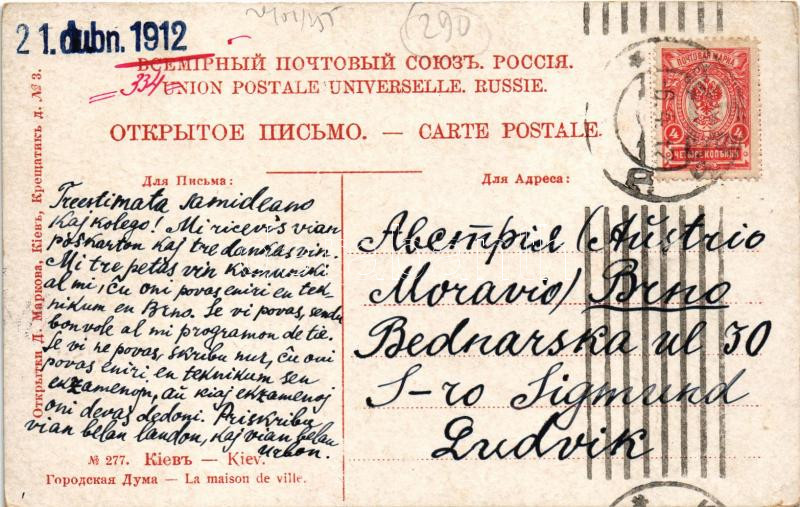 21. dubn. 1912
(290)
334
ВСЕМІРНЫЙ ПОЧТОВЫЙ СОЮЗЪ. РОССІЯ.
UNION POSTALE UNIVERSELLE. RUSSIE.
ОТКРЫТОЕ ПИСЬМО. — CARTE POSTALE.
ПОЧТОВАЯ МАРКА
4 4
ЧЕТЫРЕ КОПѢЙКИ
Для Письма:
Treestimata samideano
Kaj kolego! Mi ricevis vian
poŝkarton kaj tre dankas vin.
Mi tre petas vin komuniki
al mi, ĉu oni povas eniri en tek-
nikum en Brno. Se vi povas, sendu
bonvole al mi programon de tie.
Se vi ne povas, skribu nur, ĉu oni
povas eniri en teknikum sen
ekzamenoj, aŭ kiaj ekzamenoj
oni devas dedoni. Priskribu
vian belan landon, kaj vian belan
urbon.
Для Адреса:
Австрія (Aŭstrio
Moravio) Brno
Bednarska ul 30
S-ro Sigmund
Ludvik
№ 277. Кіевъ — Kiev.
Городская Дума — La maison de ville.
Открытки Д. Маркова, Кіевъ, Крещатикъ д. № 3.